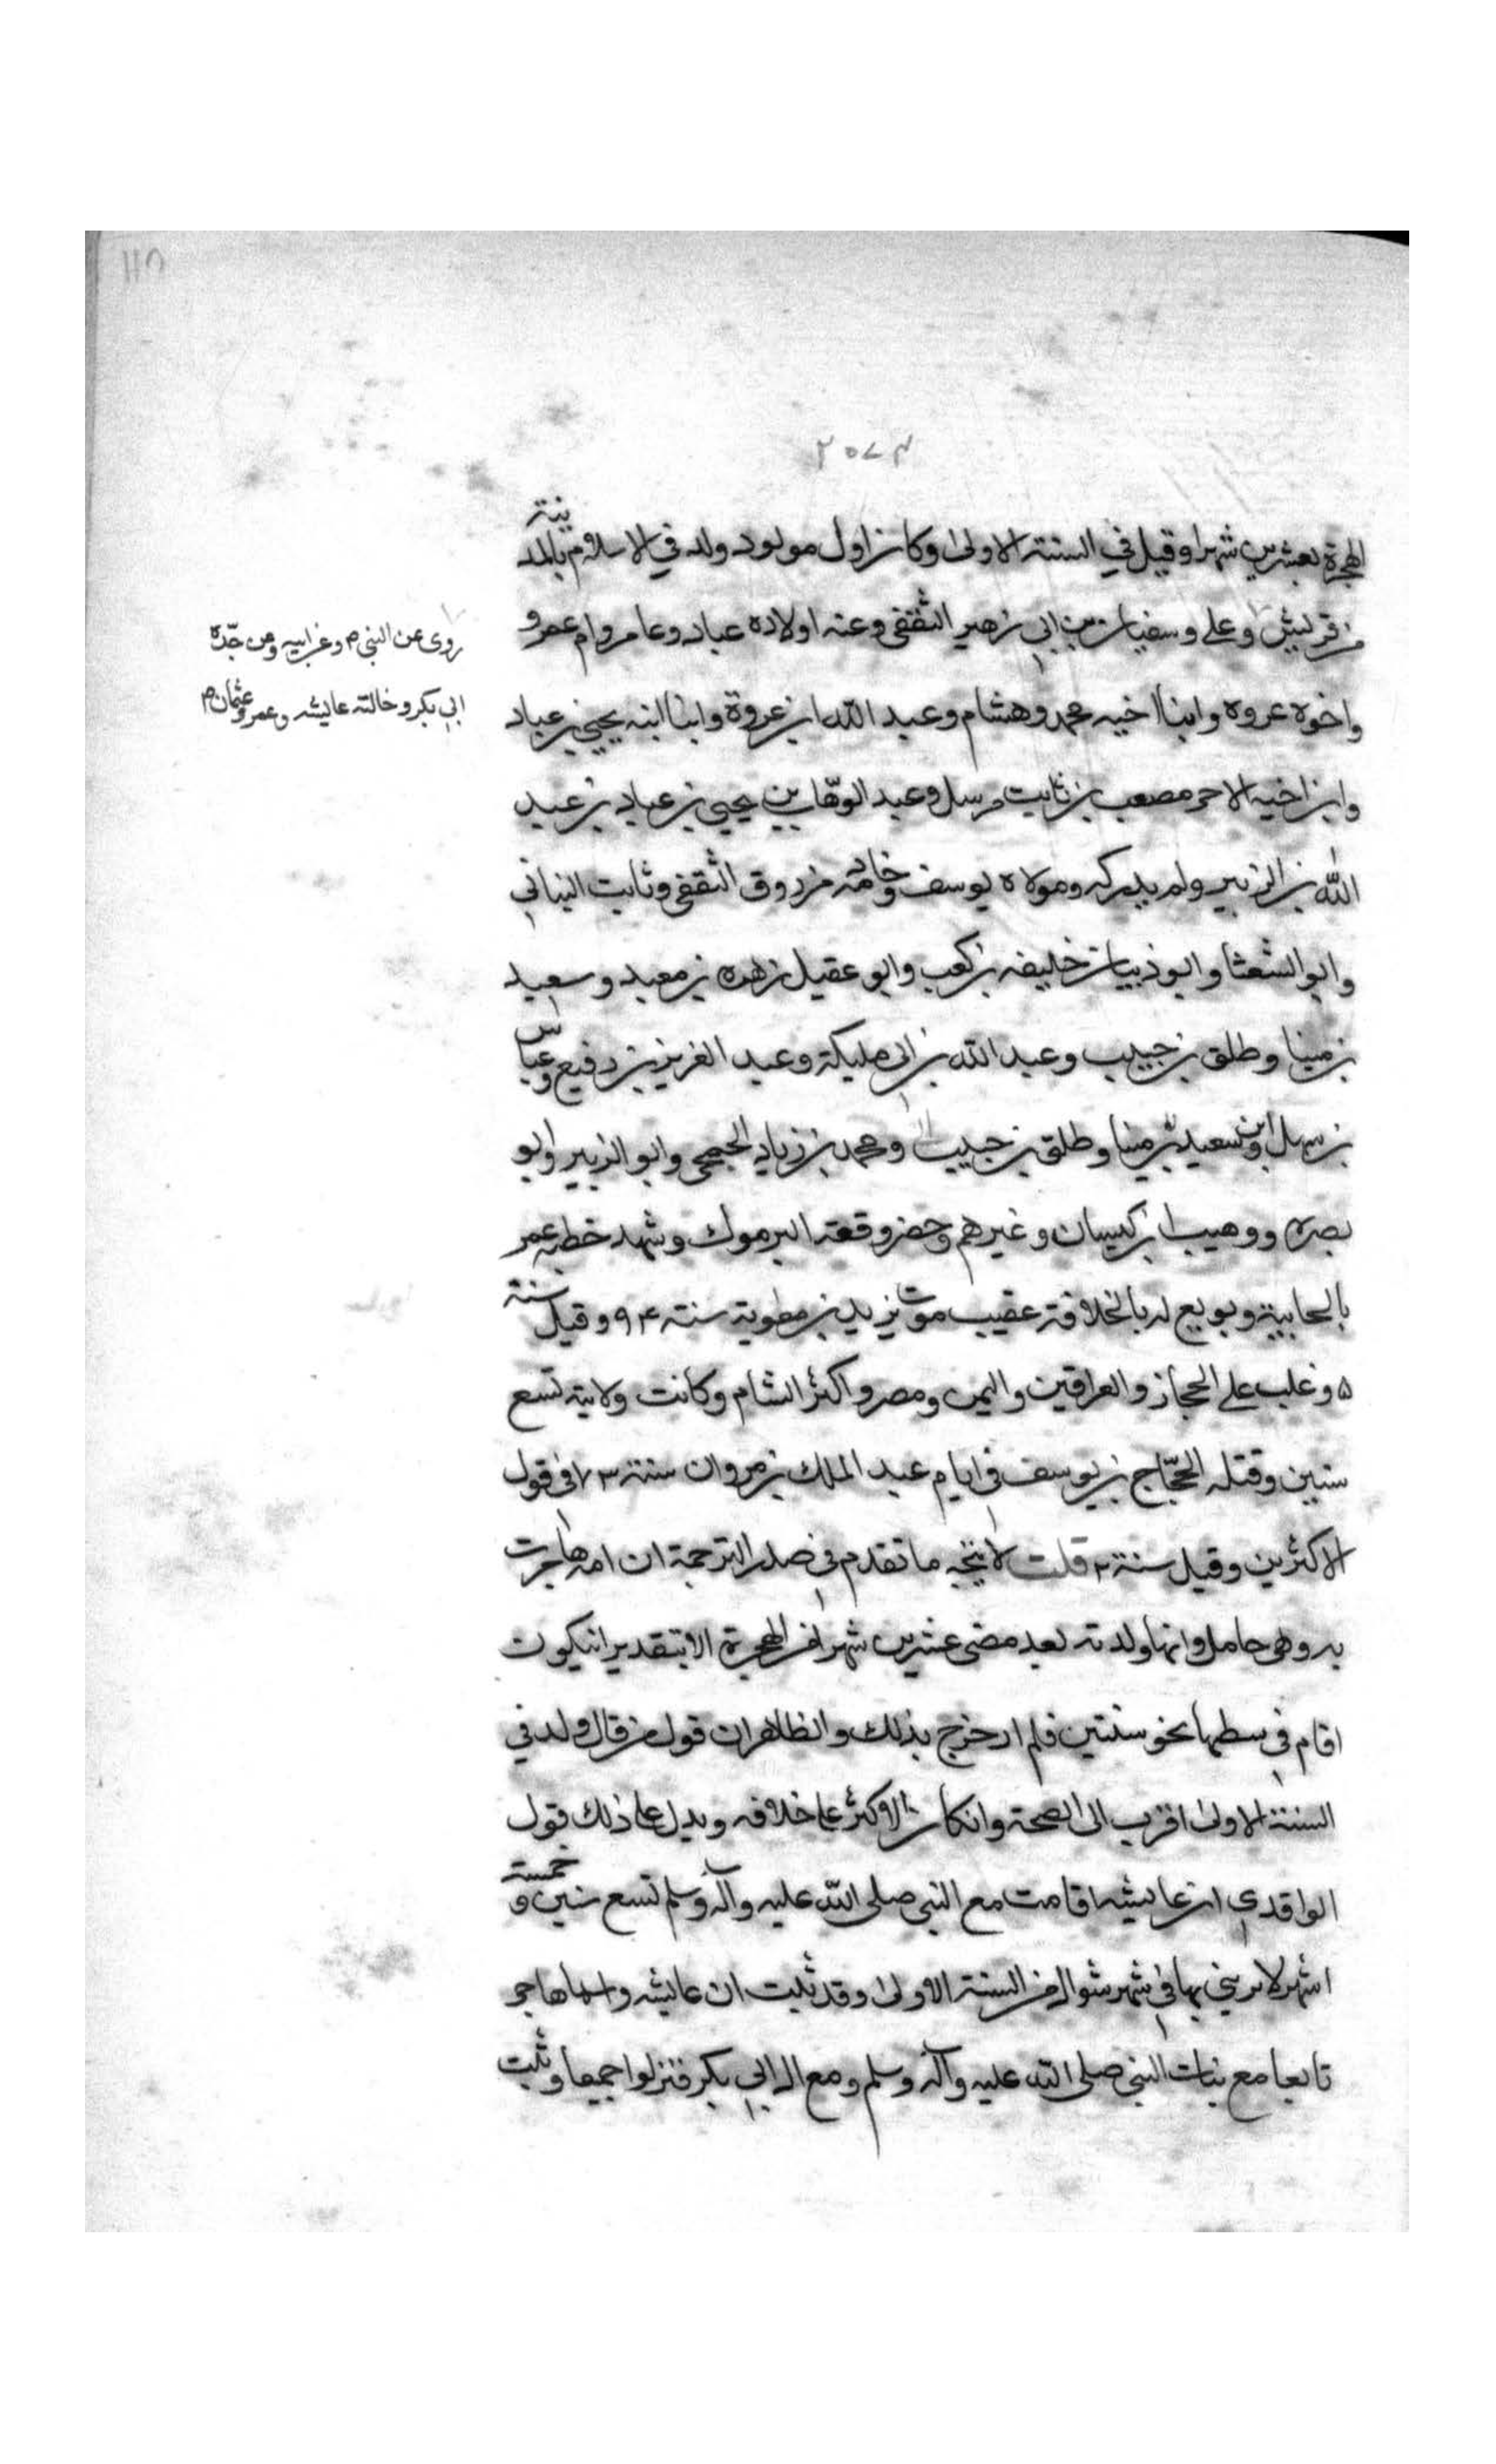 ١١٥
٢٠٧٣
الهجرة بعشرين شهرا وقيل في السنة الاولى وكان اول مولود ولد في الاسلام بالمدينة
من قريش وعلى وسفيان بن ابي زهير الثقفى وعنه اولاده عباد وعامر وام عمرو
واخوه عروه وابنا اخيه محمد وهشام وعبد الله ابن عروة وابنا ابنه يحيى بن عباد
وابن اخيه الاحر مصعب بن ثابت مرسل وعبد الوهاب بن يحيى بن عباد بن عبد
الله بن الزبير ولم يدركه ومولاه يوسف وخادمه مرزوق الثقفى وثابت البناني
وابو الشعثا وابو ذبيان خليفه بن كعب وابو عقيل زهره بن معبد وسعيد
بن مينا وطلق بن حبيب وعبد الله بن ابى مليكة وعبد العزيز بن رفيع وعباس
بن سهل وابن سعيد بن مينا وطلق بن حبيب ومحمد بن زياد الجمحى وابو الزبير وابو
بصره ووهيب ابن كيسان وغيرهم وحضر وقعة اليرموك وشهد خطبه عمر
بالجابية وبويع له بالخلافة عقيب موت يزيد بن معوية سنة ٩٤ وقيل سنة
٥ وغلب على الحجاز والعراقين واليمن ومصر واكثر الشام وكانت ولايته تسع
سنين وقتله الحجّاج بن يوسف فى ايام عبد الملك بن مروان سنة ٧٣ فى قول
الاكثرين وقيل سنة ٢ قلت لا يتجه ما تقدم في صدر الترجمة ان امه هاجرت
به وهى حامل وانها ولدته بعد مضى عشرين شهرا من الهجرة الا بتقدير ان يكون
اقام فى بطنها نحو سنتين فلم ار خرج بذلك والظاهر ان قول من قال ولد في
السنة الاولى اقرب الى الصحة وان كان الاكثر على خلافه ويدل على ذلك قول
الواقدى ان عايشه اقامت مع النبى صلى الله عليه وآله وسلم تسع سنين وخمسة
اشهر لانه بنى بها فى شهر شوال من السنة الاولى وقد ثبت ان عايشه واسما هاجر
تا معا مع بنات النبى صلى الله عليه وآله وسلم ومع ال ابي بكر فنزلوا جميعا وثبت
روى عن النبي م وعن ابيه وعن جدّه
ابي بكر وخالته عايشه وعمر وعثمان م